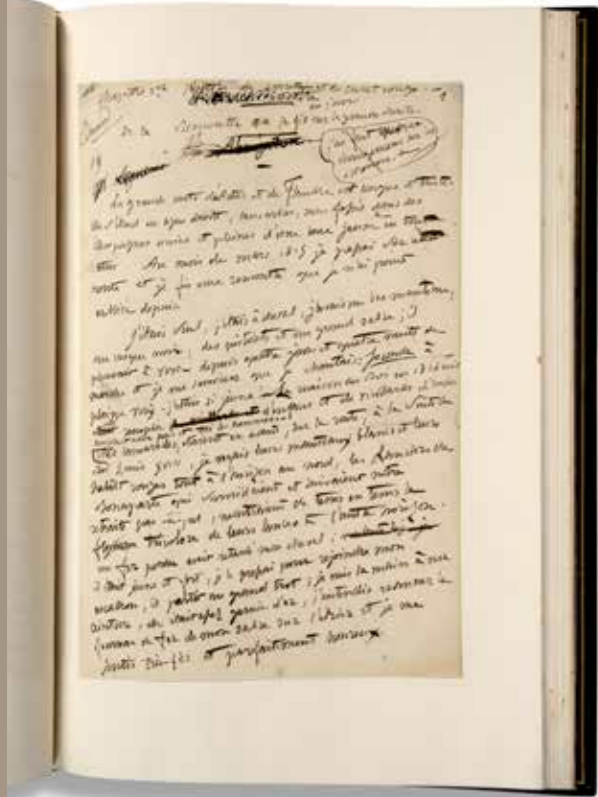 De la Rencontre que je fis sur la grande route.
La grande route d'artois et de flandre est longue et triste.
elle s'étend en ligne droite, sans arbres, sans fossés dans des
campagnes unies et pleines d'une boue jaune en tout
temps. Au mois de mars 1815 je passai sur cette
route et je fis une rencontre que je n'ai point
oubliée depuis.
j'étais seul, j'étais à cheval, j'avais un bon manteau,
un casque noir, des pistolets et un grand sabre ; il
pleuvait à verse depuis quatre jours et quatre nuits de
marche et je me souviens que je chantais Joconde à
pleine voix. j'étais si jeune — La maison du Roi en 1814
remplie d'enfants et de vieillards
Mes camarades étaient en avant, sur la route, à la suite du
roi Louis XVIII ; je voyais leurs manteaux blancs et leurs
habits rouges tout à l'horizon au nord ; les Lanciers de
Bonaparte qui surveillaient et suivaient notre
retraite pas-à-pas, montraient de tems en tems la
flamme tricolore de leurs lances à l'autre horizon.
un fer perdu avait retardé mon cheval ;
il était jeune et fort, je le pressai pour rejoindre mon
escadron, il partit au grand trot ; je mis la main à ma
ceinture, elle était assez garnie d'or, j'entendis résonner le
fourreau de fer de mon sabre sur l'étrier et je me
sentis très-fier et parfaitement heureux.